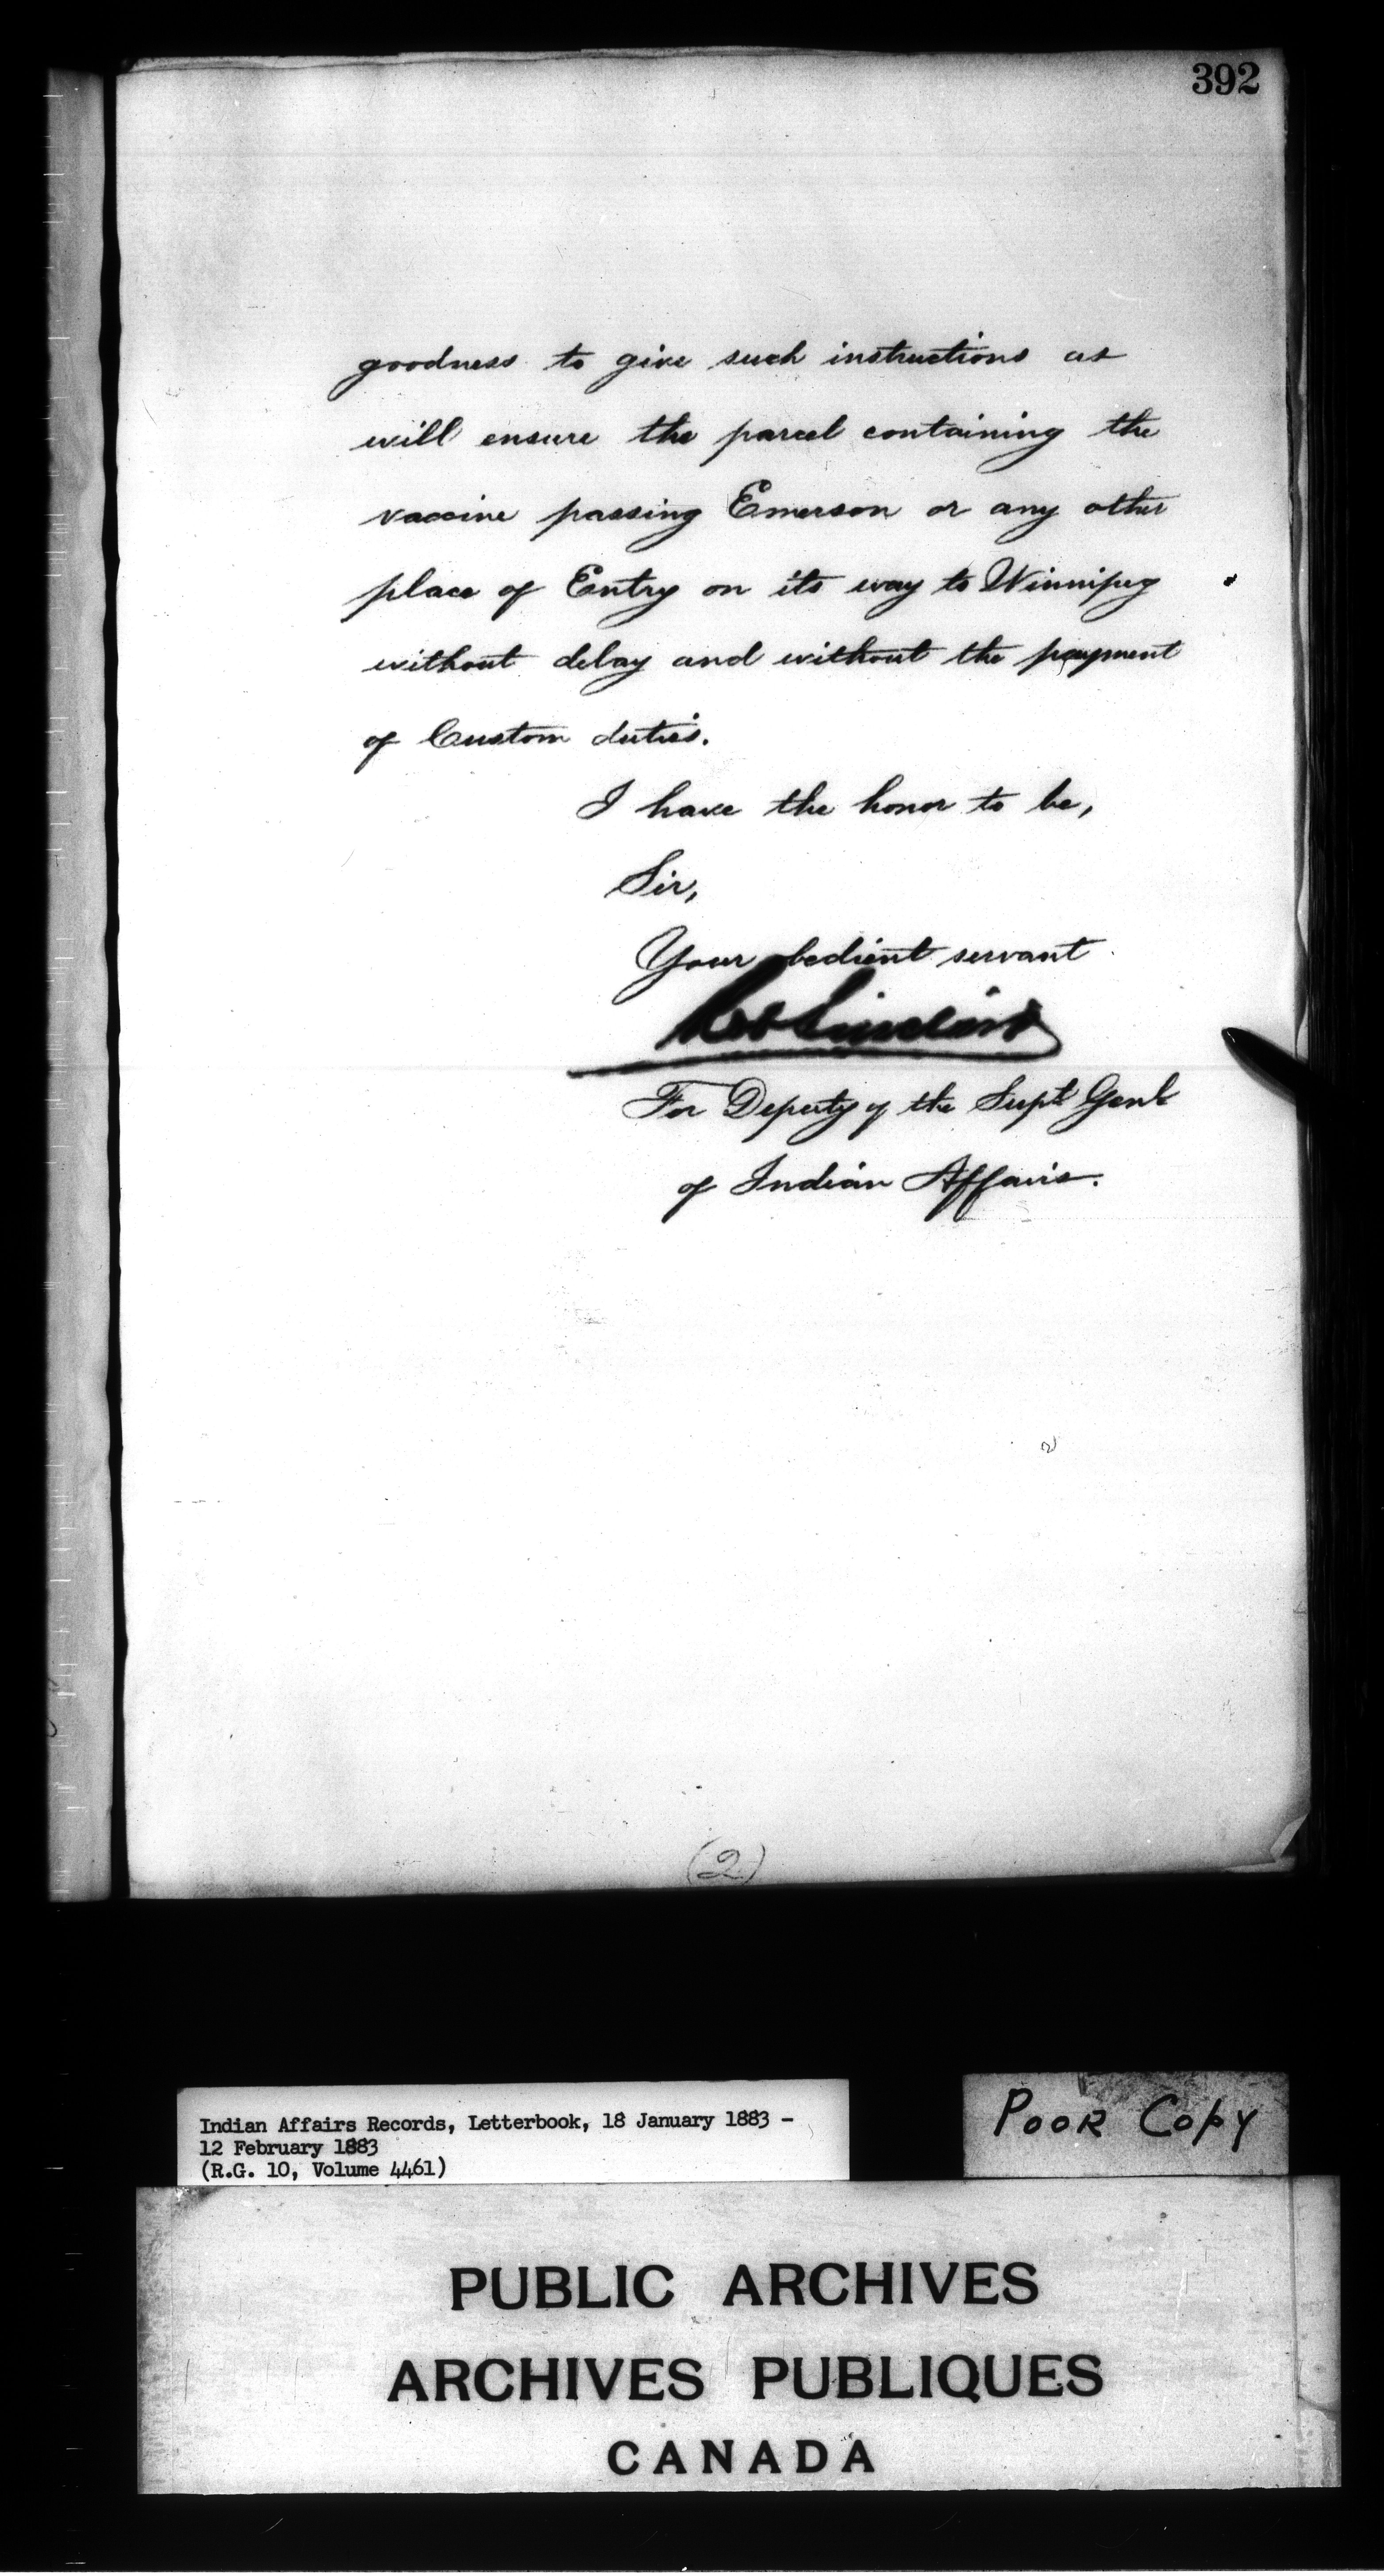 392
goodness to give such instructions as
will ensure the parcel containing the
vaccine passing Emerson or any other
place of Entry on its way to Winnipeg
without delay and without the payment
of Custom duties.
I have the honor to be,
Sir,
Your obedient servant
For Deputy of the Supt Genl
of Indian Affairs.
(2)
Indian Affairs Records, Letterbook, 18 January 1883 -
12 February 1883
(R.G. 10, Volume 4461)
POOR COPY
PUBLIC ARCHIVES
ARCHIVES PUBLIQUES
CANADA